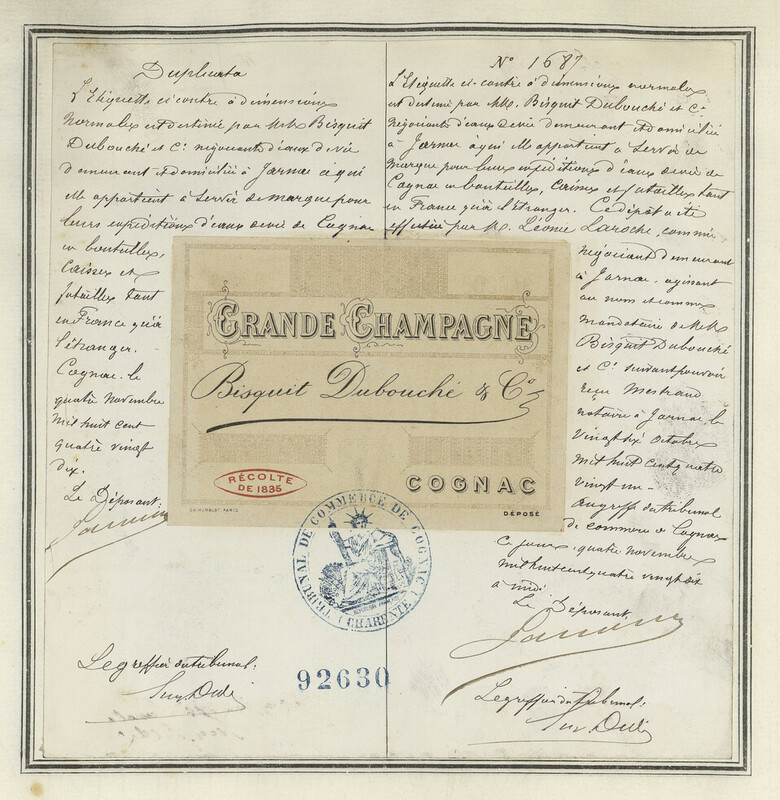 Duplicata
L'Etiquette ci contre à dimensions
normales est destiné par MM Bisquit
Dubouché et Cie négociants d'eaux de vie
demeurant et domiciliés à Jarnac à qui
elle appartient à servir de marque pour
leurs expéditions d'eaux de vie de Cognac
en bouteilles,
Caisses et
futailles tant
en France qu'à
l'étranger.
Cognac le
quatre novembre
mil huit cent
quatre vingt
dix.
Le Déposant,
Le greffier du tribunal:
No 1687
L'Etiquette ci-contre à dimensions normales
est destiné par MM. Bisquit Dubouché et Cie
négociants d'eaux de vie demeurant et domiciliés
à Jarnac à qui elle appartient à servir de
marque pour leurs expéditions d'eaux de vie de
Cognac en bouteilles, Caisses et futailles tant
en France qu'à l'étranger. Ce dépôt a été
effectué par M. Léonce Laroche, commis
négociant demeurant
à Jarnac, agissant
au nom et comme
mandataire de MM
Bisquit Dubouché
et Cie suivant pouvoir
reçu Mestraud
notaire à Jarnac le
vingt six octobre
mil huit cent quatre
vingt un -
au greffe du tribunal
de commerce de Cognac
ce jour, quatre novembre
mil huit cent quatre vingt dix
à midi
Le Déposant,
Le greffier du Tribunal:
GRANDE CHAMPAGNE
Bisquit Dubouché & Co
RÉCOLTE
DE 1835
COGNAC
CH. HUMBLOT. PARIS
DÉPOSÉ
TRIBUNAL DE COMMERCE DE COGNAC
(CHARENTE)
92630